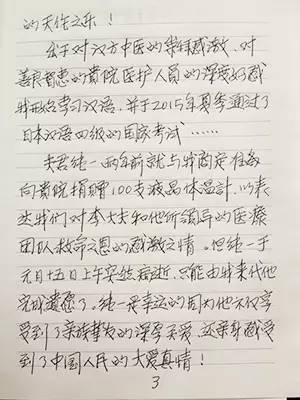 的天伦之乐！
出于对汉方中医的崇拜感激、对
善良智惠的貴院医护人员的深度好感
我开始学习汉语，并于2015年夏季通过了
日本汉语四级的国家考试……
夫君纯一两年前就与我商定准备
向貴院捐贈100支液晶体温計，以表
达我们对李大夫和他所领导的医療
团队救命之恩的感激之情。但纯一于
元月十五日上午突然病逝，只能由我来代他
完成遗愿了。纯一是幸运的因为他不仅享
受到了亲族挚友的深厚关爱，还亲身感受
到了中国人民的大爱真情！
3